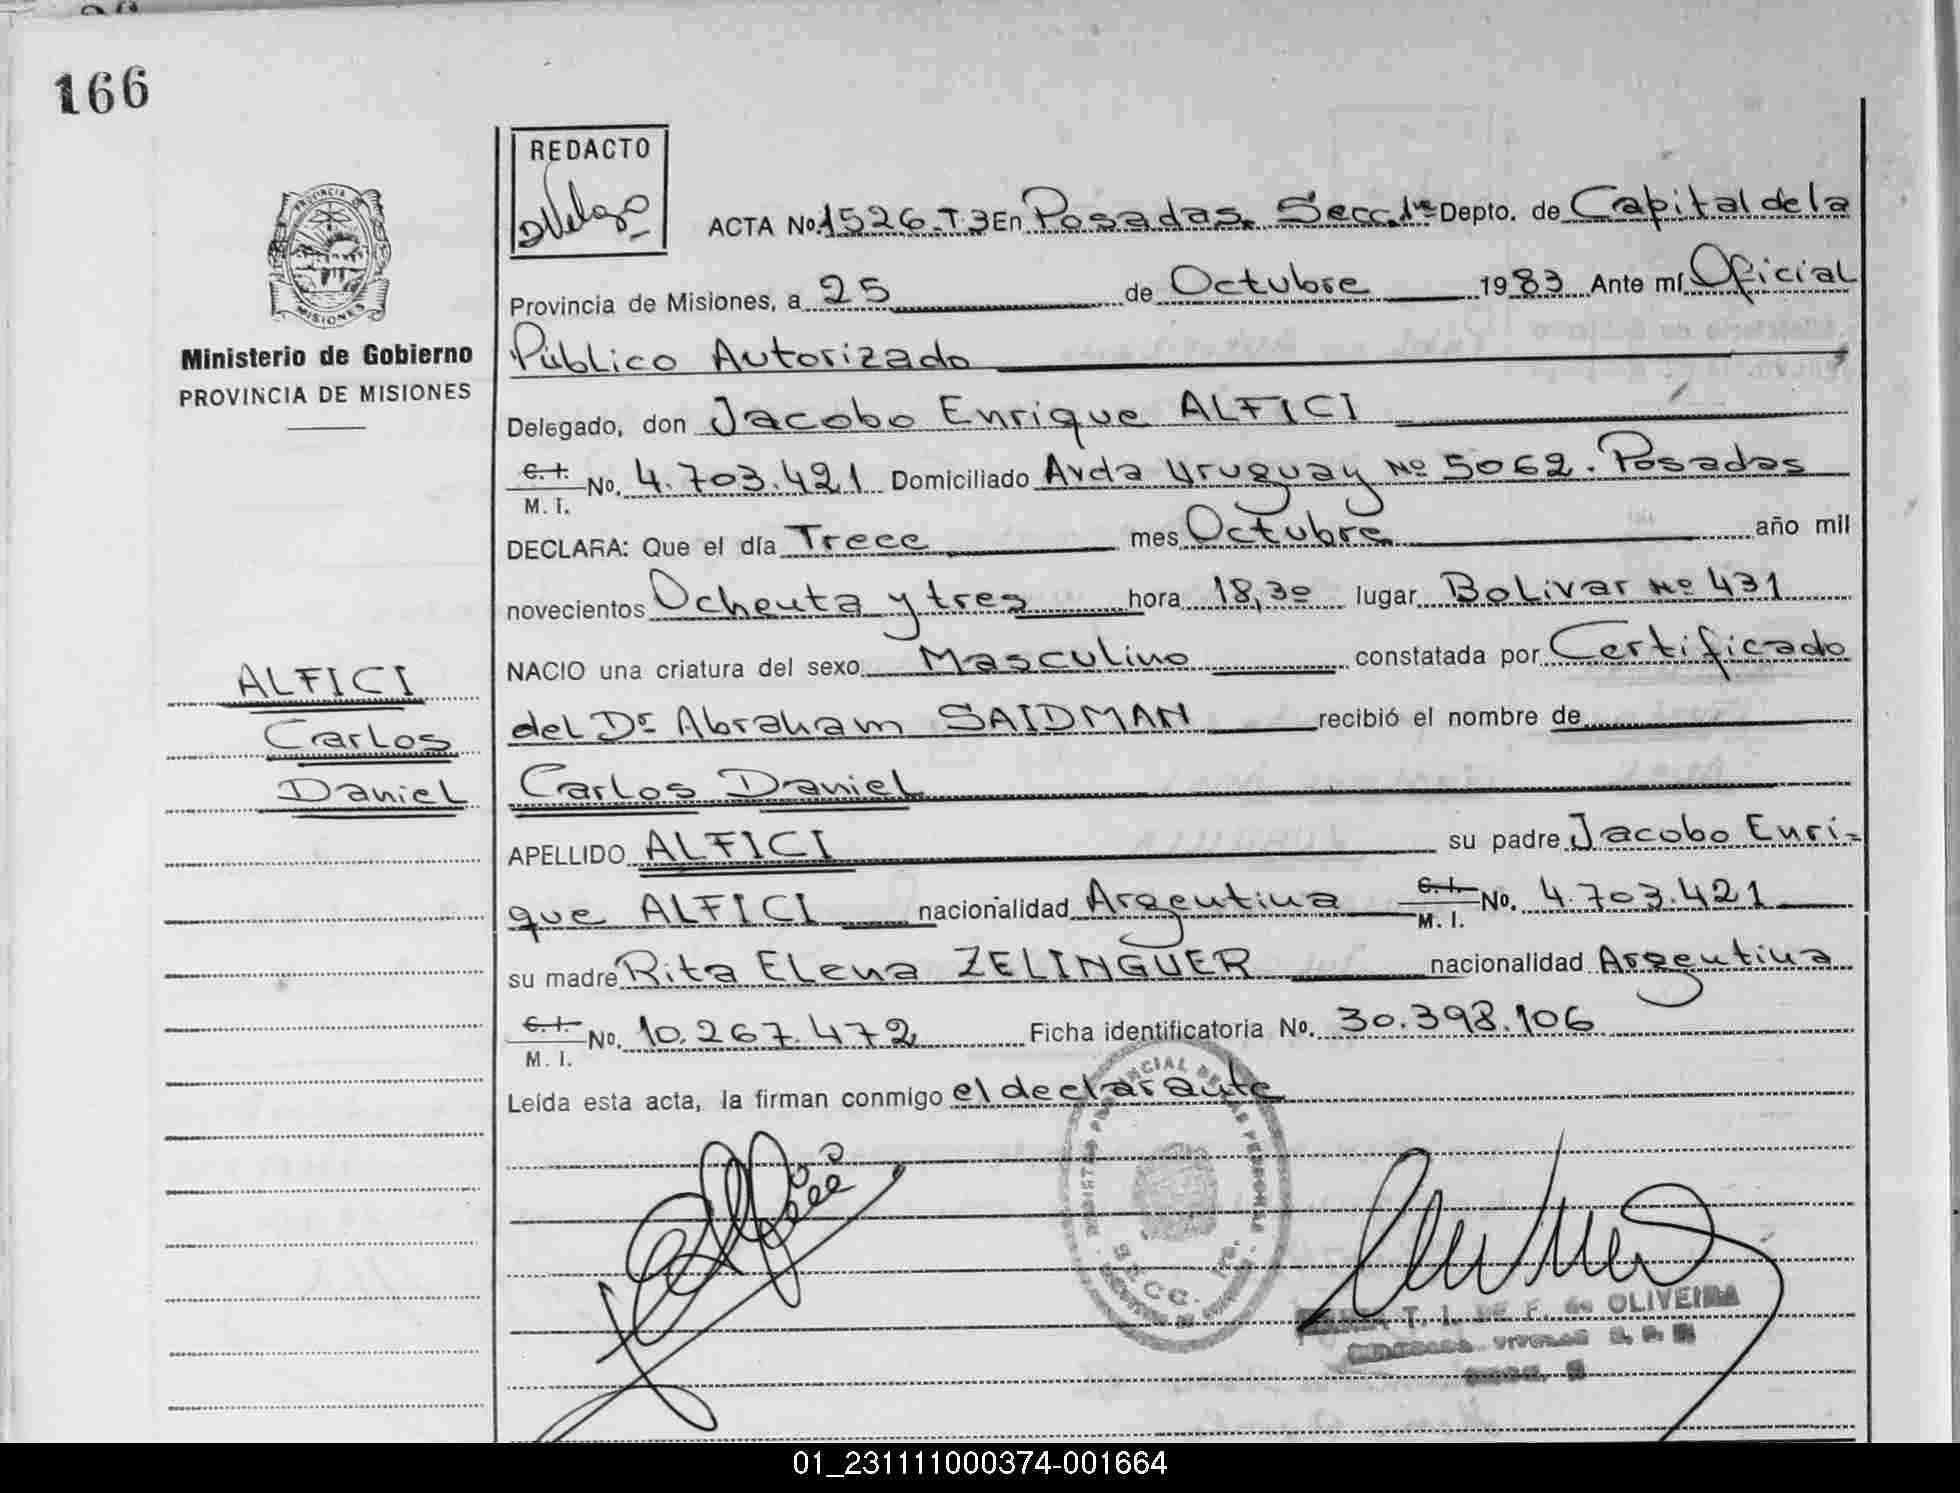 166
REDACTO
PROVINCIA DE
MISIONES
Ministerio de Gobierno
PROVINCIA DE MISIONES
ACTA No. 1526-T3 En Posadas. Secc. 1ra Depto. de Capital de la
Provincia de Misiones, a 25 de Octubre 1983 Ante mí Oficial
Público Autorizado
Delegado, don Jacobo Enrique ALFICI
C. I. No. 4.703.421 Domiciliado Avda Uruguay Nº 5062. Posadas
M. I.
DECLARA: Que el día Trece mes Octubre año mil
novecientos Ochenta y tres hora 18,30 lugar Bolivar Nº 431
NACIO una criatura del sexo Masculino constatada por Certificado
del Dr Abraham SAIDMAN recibió el nombre de
Carlos Daniel
APELLIDO ALFICI su padre Jacobo Enri-
que ALFICI nacionalidad Argentina C. I. No. 4.703.421
M. I.
su madre Rita Elena ZELINGUER nacionalidad Argentina
C. I. No. 10.267.472 Ficha identificatoria No. 30.398.106
M. I.
Leída esta acta, la firman conmigo el declarante
ALFICI
Carlos
Daniel
REGISTRO PROVINCIAL DE LAS PERSONAS
SECC. 1ra.
T. I. DE F. de OLIVEIRA
01_231111000374-001664